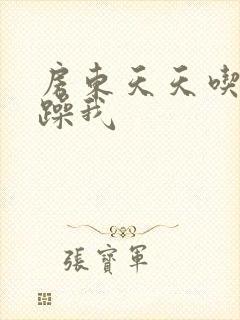 房東天天喫
躁我
張寶軍